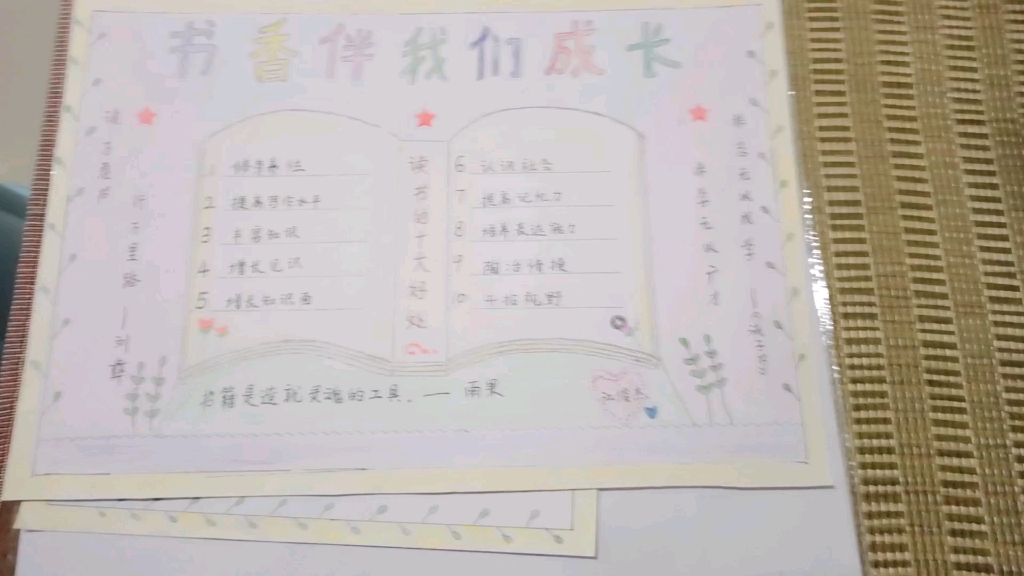 书香伴我们成长
读万卷书
行万里路
—刘彝
1 修身养性
2 提高写作水平
3 丰富知识
4 增长见识
5 增长知识面
读书的十大好处
6 认识社会
7 提高记忆力
8 培养表达能力
9 陶冶情操
10 开拓视野
非学无以广才
非志无以成学
书籍是造就灵魂的工具。——雨果